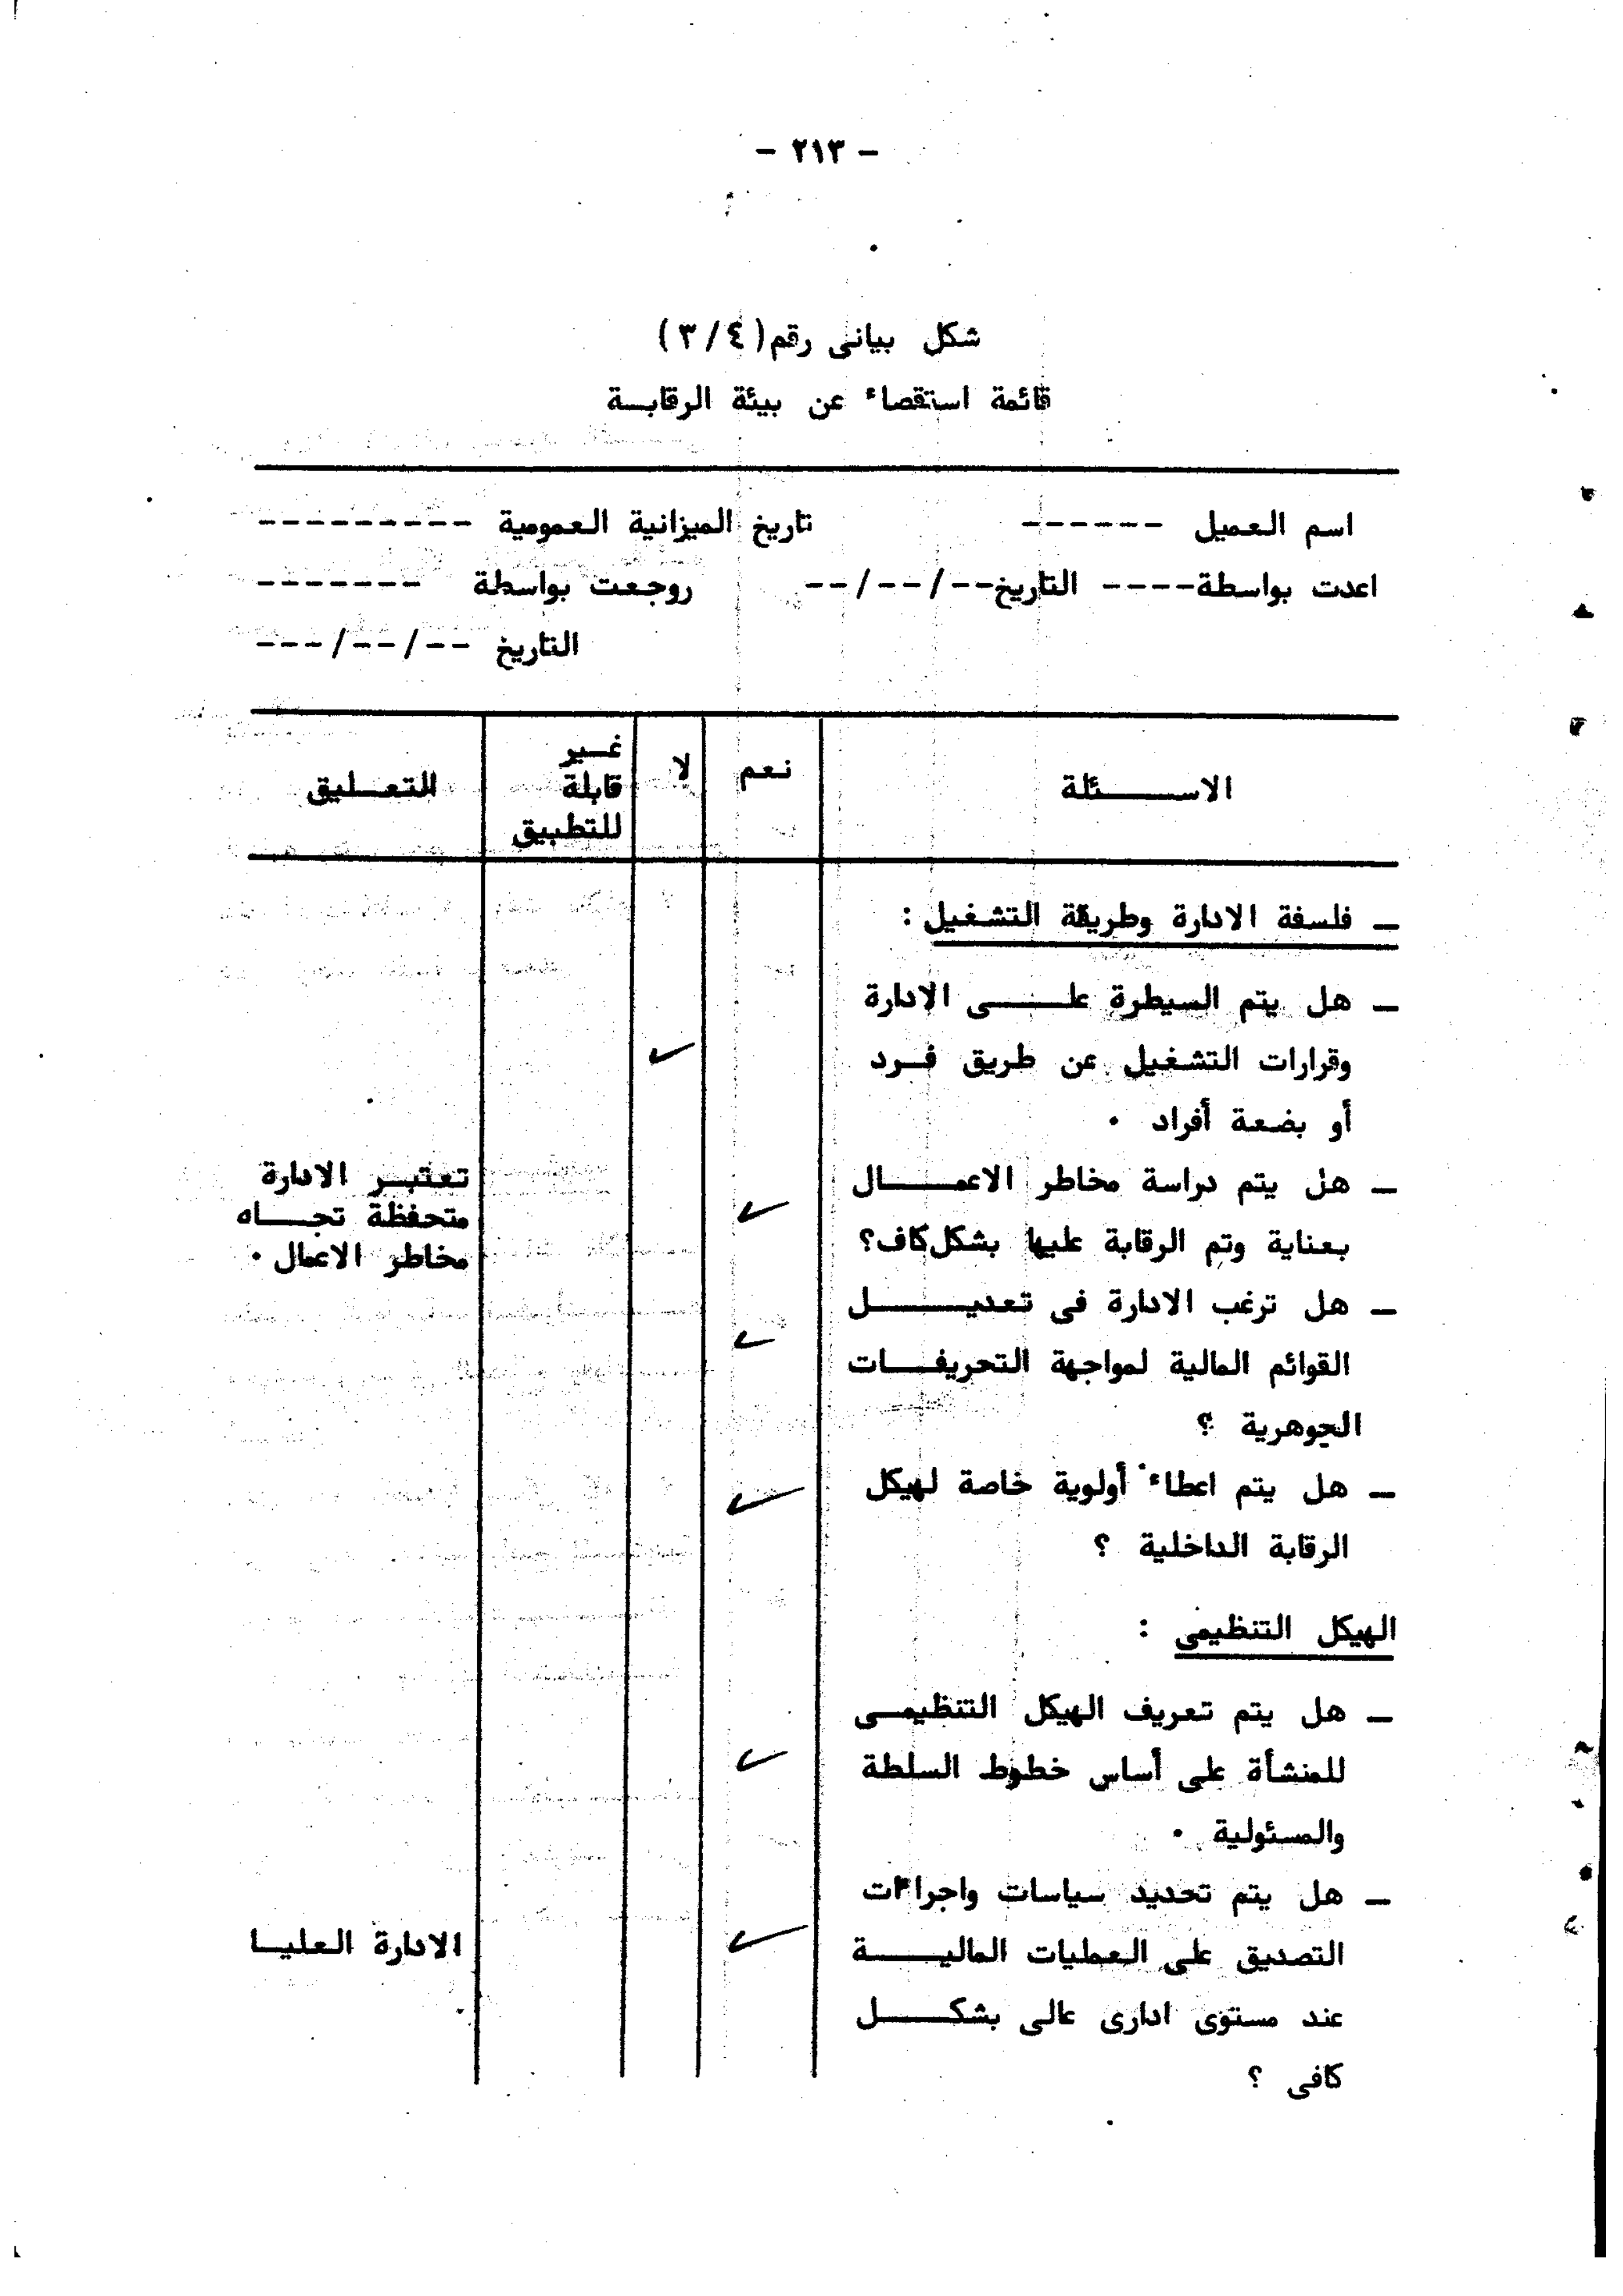 - ٢١٣ -
شكل بيانى رقم (٣/٤)
قائمة استقصاء عن بيئة الرقابة
اسم العميل ------ تاريخ الميزانية العمومية ---------
اعدت بواسطة---- التاريخ--/--/-- روجعت بواسطة -------
التاريخ --/--/---
الاسئلة نعم لا غير قابلة للتطبيق التعليق
— فلسفة الادارة وطريقة التشغيل :
— هل يتم السيطرة على الادارة
وقرارات التشغيل عن طريق فرد ✓
أو بضعة أفراد .
— هل يتم دراسة مخاطر الاعمال ✓ تعتبر الادارة
بعناية وتم الرقابة عليها بشكل كاف؟ متحفظة تجاه
مخاطر الاعمال .
— هل ترغب الادارة فى تعديل ✓
القوائم المالية لمواجهة التحريفات
الجوهرية ؟
— هل يتم اعطاء أولوية خاصة لهيكل ✓
الرقابة الداخلية ؟
الهيكل التنظيمى :
— هل يتم تعريف الهيكل التنظيمى
للمنشأة على أساس خطوط السلطة ✓
والمسئولية .
— هل يتم تحديد سياسات واجراءات
التصديق على العمليات المالية ✓ الادارة العليا
عند مستوى ادارى عالى بشكل
كافى ؟